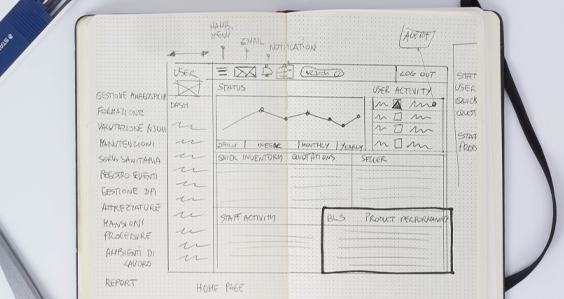 HAMB.
MENU
EMAIL
NOTIFICATION
ALERT
USER
SEARCH
LOG OUT
STATUS
USER ACTIVITY
STAT
USER
QUICK
QUOT
STAFF
PROD
GESTIONE ANAGRAFICHE
FORMAZIONE
DASH
VALUTAZIONE RISCHI
MANUTENZIONI
SORV. SANITARIA
REGISTRO EVENTI
GESTIONE DPI
ATTREZZATURE
MANSIONI
PROCEDURE
AMBIENTI DI
LAVORO
REPORT
DAILY
MONTHLY
YEARLY
QUICK INVENTORY
QUOTATIONS
SELLER
STAFF ACTIVITY
PRODUCT PERFORMANCE
HOME PAGE
STAED